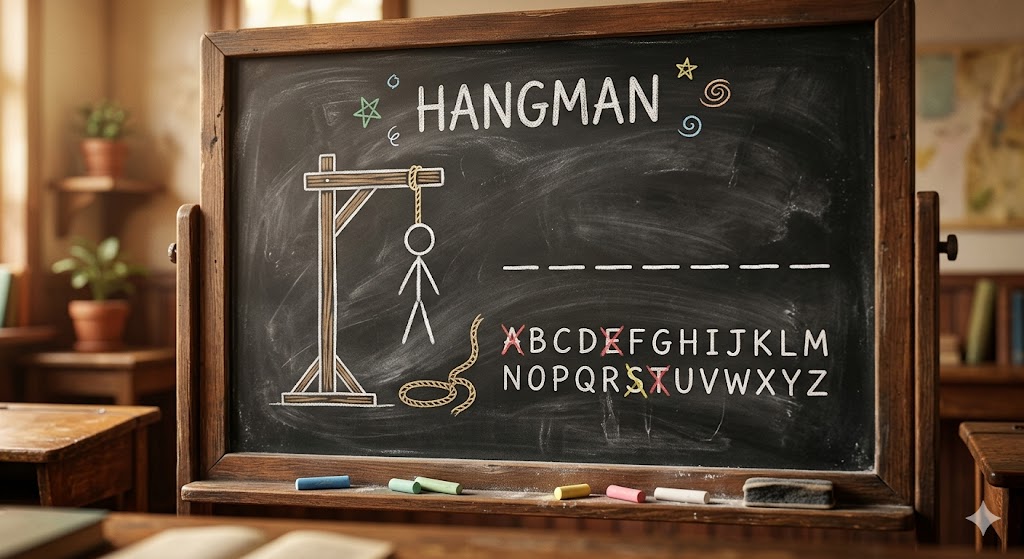 HANGMAN
_ _ _ _ _ _ _
ABCDEFGHIJKLM
NOPQRSTUVWXYZ